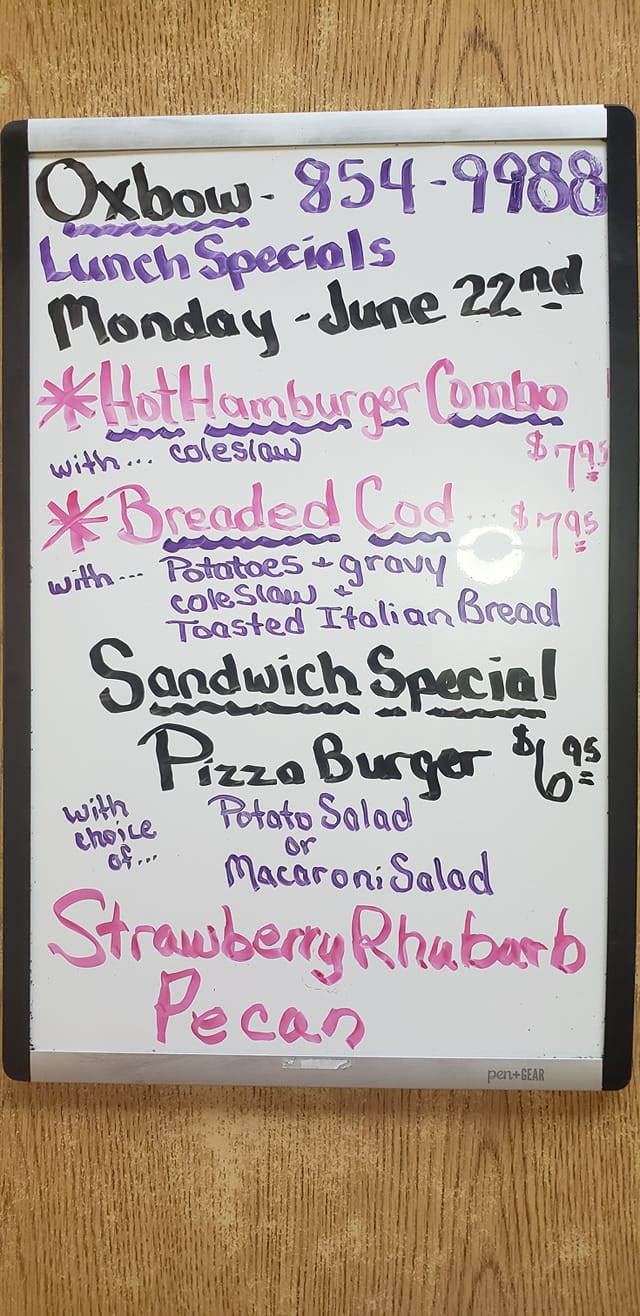 Oxbow - 854-9988
Lunch Specials
Monday - June 22nd
*Hot Hamburger Combo
with... coleslaw $7.95
*Breaded Cod... $7.95
with... Potatoes + gravy
coleslaw +
Toasted Italian Bread
Sandwich Special
Pizza Burger $6.95
with choice of... Potato Salad
or
Macaroni Salad
Strawberry Rhubarb
Pecan
pen+GEAR